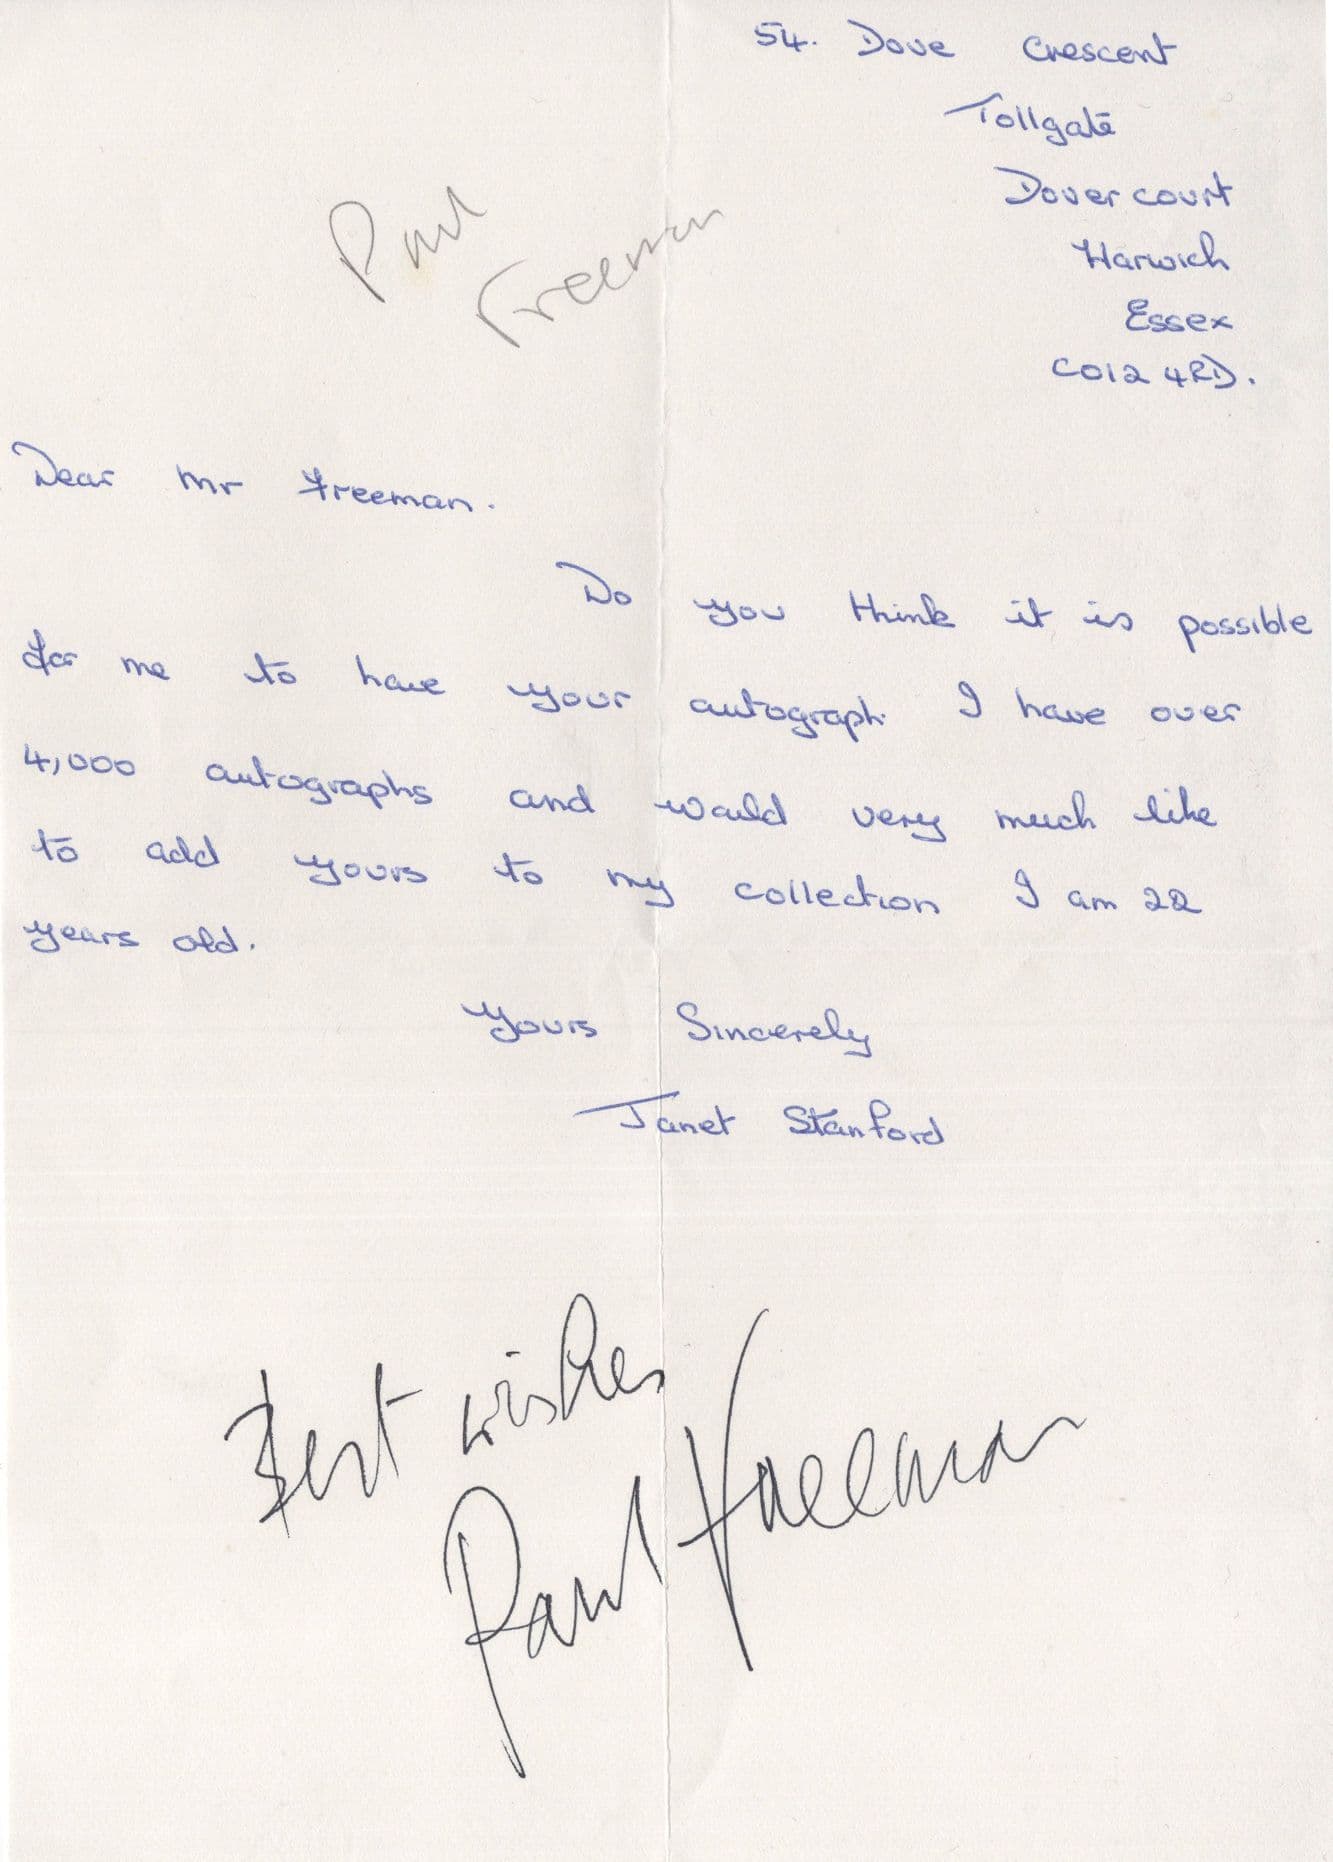 54. Dove Crescent
Tollgate
Dovercourt
Harwich
Essex
CO12 4RD.
Paul
Freeman
Dear Mr Freeman.
Do you think it is possible
for me to have your autograph. I have over
4,000 autographs and would very much like
to add yours to my collection I am 22
years old.
Yours Sincerely
Janet Stanford
Best wishes
Paul Freeman